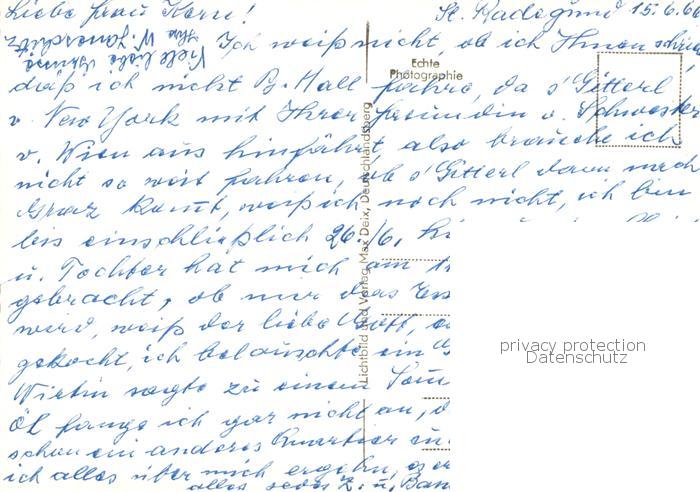 Liebe Frau Kern!
St. Radegund 15.6.66
Viele liebe Grüsse
Ihre W. Janeschitz
Ich weiß nicht, ob ich Ihnen schrieb
daß ich nicht B. Hall fahre, da s' Gitterl
v. New York mit Ihrer Freundin u. Schwester
v. Wien aus hinfährt, also brauche ich
nicht so weit fahren, ob s' Gitterl dann nach
Graz kommt, weiß ich noch nicht, ich bin
bis einschließlich 26./6.
u. Tochter hat mich am
gebracht, ob nur das
wird, weiß der liebe Gott,
gekocht, ich belauschte ein
Wirtin sagte zu einem
Öl fange ich gar nicht an,
schon ein anderes Quartier
ich alles über mich ergehn,
alles
Echte
Photographie
Lichtbild und Verlag Max Deix, Deutschlandsberg
privacy protection
Datenschutz